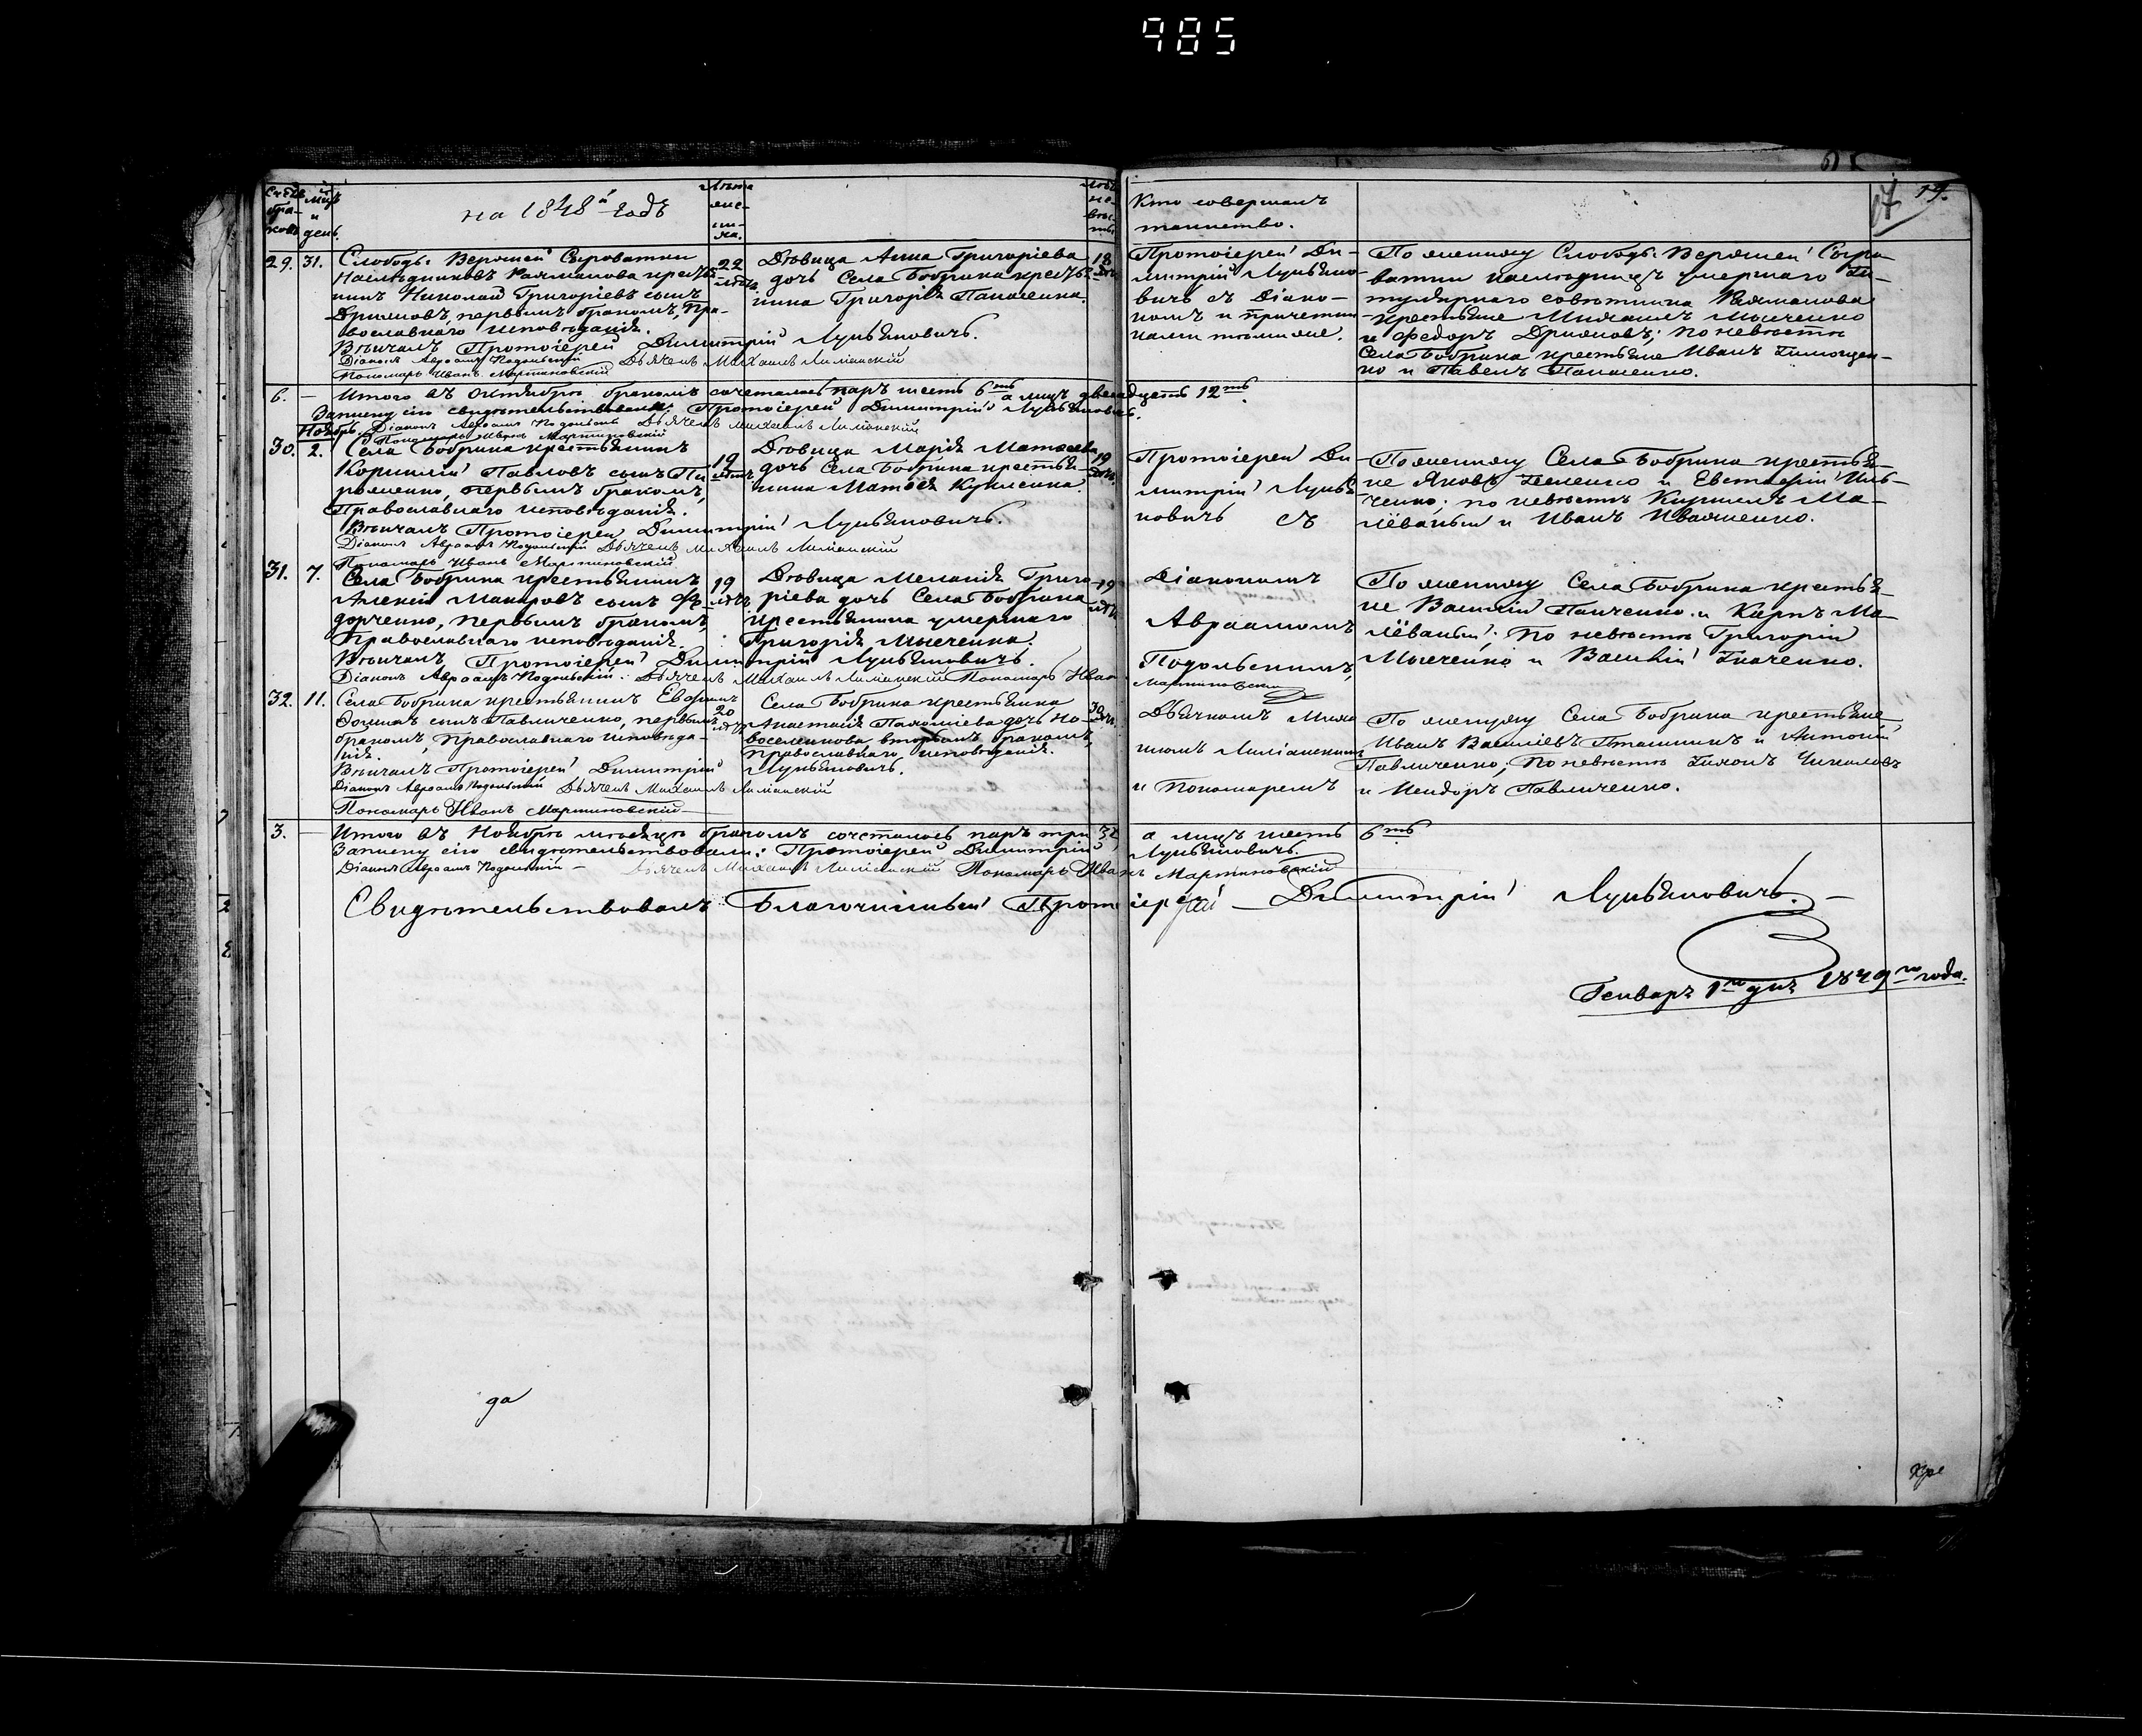 985
17
19.
Счетъ бра- ковъ
Мцъ и день.
на 1848й годъ
Лѣта же- ни- ха.
Лѣта не- вѣс- ты
Кто совершалъ
таинство.
29. 31. Слободы Верхней Сыроватки
Наслѣдниковъ крестья-
нинъ Николай Григоріевъ сынъ
первымъ бракомъ, Пра-
вославнаго исповѣданія.
Вѣнчалъ Протоіерей Димитрій Лукьяновичъ.
Діаконъ Авраамъ Подольскій Дьячекъ Михаилъ Лиманскій
Пономарь Иванъ Мартиновскій
22 лѣтъ
Дѣвица Анна Григоріева
дочь Села Бобрика крестья-
нина Григорія Панченка.
18 лѣтъ
Протоіерей Ди-
митрій Лукьяно-
вичъ съ Діако-
номъ и причетни-
ками тѣми же.
По жениху Слободы Верхней Сыро-
ватки наслѣдницъ умершаго Ти-
тулярнаго совѣтника
крестьяне Михаилъ Мысченко
и Федоръ по невѣстѣ
Села Бобрика крестьяне Иванъ Тимощен-
ко и Павелъ Панченко.
6. — Итого въ Октябрѣ бракомъ сочеталось паръ шесть 6ть а лицъ двенадцать 12ть.
Записку сію свидѣтельствовали: Протоіерей Димитрій Лукьяновичъ.
Діаконъ Авраамъ Подольскій Дьячекъ Михаилъ Лиманскій
Пономарь Иванъ Мартиновскій
Ноябрь.
30. 2. Села Бобрика крестьянинъ
Корнилій Павловъ сынъ Пи-
роженко, первымъ бракомъ,
Православнаго исповѣданія.
Вѣнчалъ Протоіерей Димитрій Лукьяновичъ.
Діаконъ Авраамъ Подольскій Дьячекъ Михаилъ Лиманскій
Пономарь Иванъ Мартиновскій
19 лѣтъ
Дѣвица Марія Матѳеева
дочь Села Бобрика крестья-
нина Матѳея Куксенка.
19 лѣтъ
Протоіерей Ди-
митрій Лукья-
новичъ съ
По жениху Села Бобрика крестья-
не Яковъ и Евстафій Иль-
ченко; по невѣстѣ Кириллъ Ма-
лёваный и Иванъ Иващенко.
31. 7. Села Бобрика крестьянинъ
Алексій Макаровъ сынъ Фе-
дорченко, первымъ бракомъ,
Православнаго исповѣданія.
Вѣнчалъ Протоіерей Димитрій Лукьяновичъ.
Діаконъ Авраамъ Подольскій. Дьячекъ Михаилъ Лиманскій Пономарь Иванъ
Мартиновскій
19 лѣтъ
Дѣвица Меланія Григо-
ріева дочь Села Бобрика
крестьянина умершаго
Григорія Мысченка.
19 лѣтъ
Діакономъ
Авраамомъ
Подольскимъ,
По жениху Села Бобрика крестья-
не Василій Панченко и Карпъ Ма-
лёваный; по невѣстѣ Григорій
Мысченко и Василій Ткаченко.
32. 11. Села Бобрика крестьянинъ Евфимъ
Фоминъ сынъ Павличенко, первымъ
бракомъ, Православнаго исповѣда-
нія.
Вѣнчалъ Протоіерей Димитрій
Лукьяновичъ.
Діаконъ Авраамъ Подольскій Дьячекъ Михаилъ Лиманскій
Пономарь Иванъ Мартиновскій
20 лѣтъ
Села Бобрика крестьянка
Анастасія Пахоміева дочь Но-
воселникова вторымъ бракомъ,
Православнаго исповѣданія.
30 лѣтъ
Дьячкомъ Миха-
иломъ Лиманскимъ
и Пономаремъ
По жениху Села Бобрика крестьяне
Иванъ Василіевъ Пташникъ и Антоній
Павличенко; По невѣстѣ Тихонъ Чихаловъ
и Исидоръ Павличенко.
3. — Итого въ Ноябрѣ мѣсяцѣ бракомъ сочеталось паръ три 3и а лицъ шесть 6ть
Записку сію свидѣтельствовали: Протоіерей Димитрій Лукьяновичъ.
Діаконъ Авраамъ Подольскій — Дьячекъ Михаилъ Лиманскій Пономарь Иванъ Мартиновскій
Свидѣтельствовалъ Благочинный Протоіерей Димитрій Лукьяновичъ. —
Генваря 1го дня 1849го года.
да